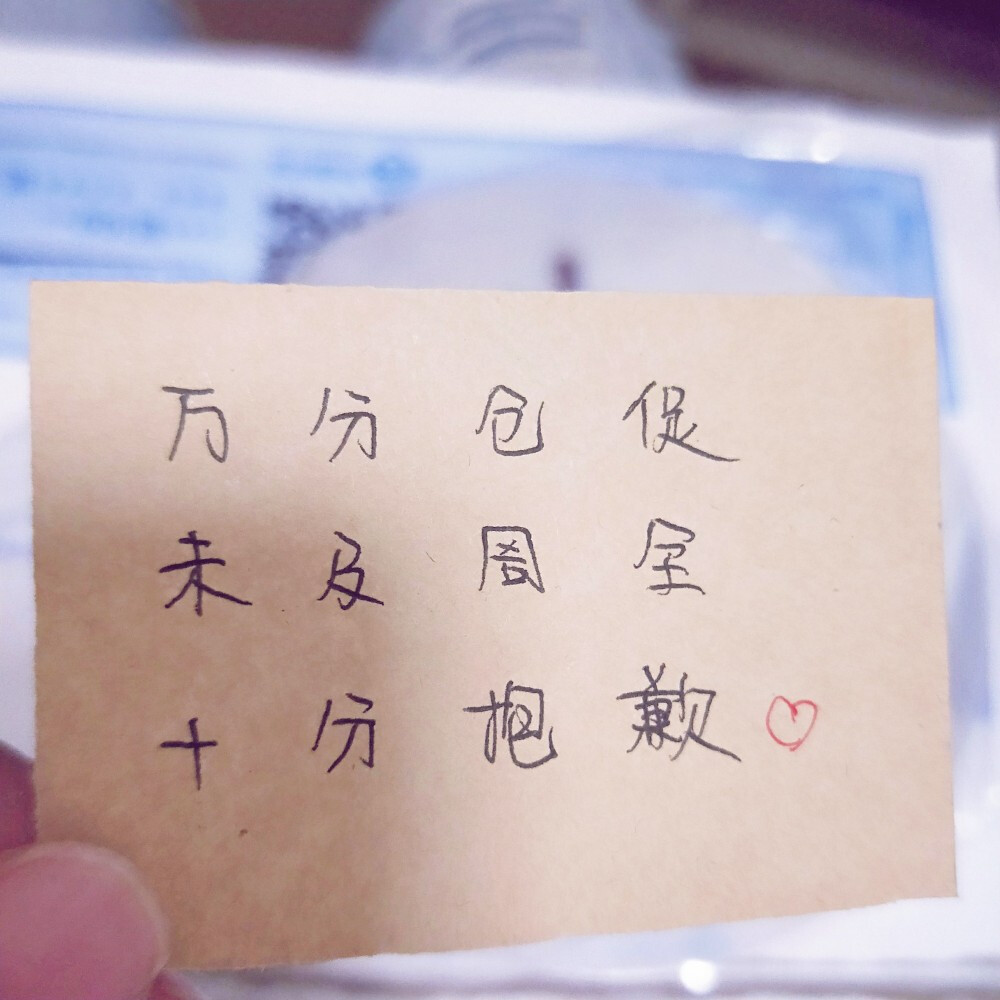 万分仓促
未及周全
十分抱歉♡